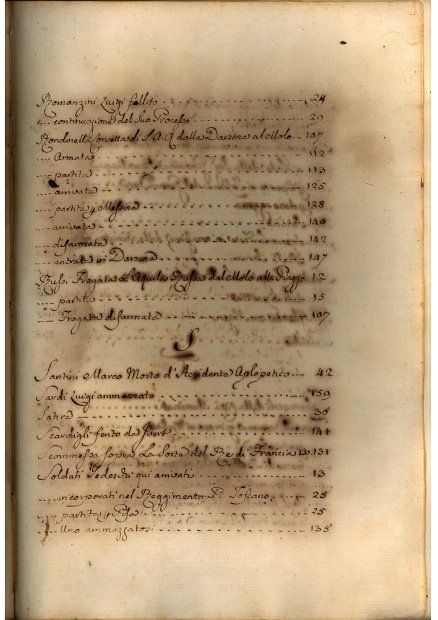 Romanzini Luigi fallito 24
continuazione del Suo Processo 29
Rondinella Corvetta di S.A.R. dalla Darsena al Molo 107
Armata 112
partita 113
arrivata 125
partita p Messina 128
arrivata 140
disarmata 142
entrata in Darsena 147
Russi Fregata l'Aquila Russa dal Molo alla Piaggia 12
partita 15
Fregata disarmata 107
S
Santini Marco Morto d'Accidente Aplopetico 42
Sardi Luigi ammazzato 159
Satira 30
Scardigli ferito da 141
Scommessa sopra La Sorte del Re di Francia 130.131
Soldati Tedeschi qui arrivati 13
incorporati nel Reggimento R. Toscano 25
partiti p Pisa 25
Uno ammazzatosi 135